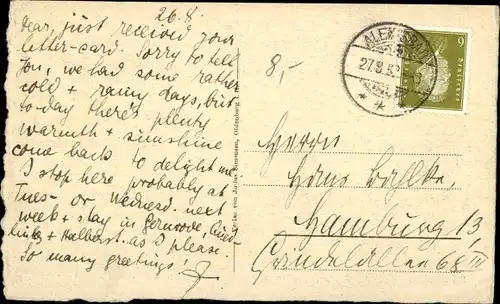 26.8.
Dear, just received your
letter-card. Sorry to tell
you, we had some rather
cold + rainy days, but
to-day there's plenty
warmth + sunshine
come back to delight me.
I stop here probably at
Tues- or Wednesd. next
week + stay in Gernrode, Qued-
linbg + Halberst. as I please.
So many greetings!
8,-
ALEXISBAD
27.8.32
6
Herrn
Hans
Hamburg 13
Grindelallee 68 III
Verlag von Julius Simonsen, Oldenburg